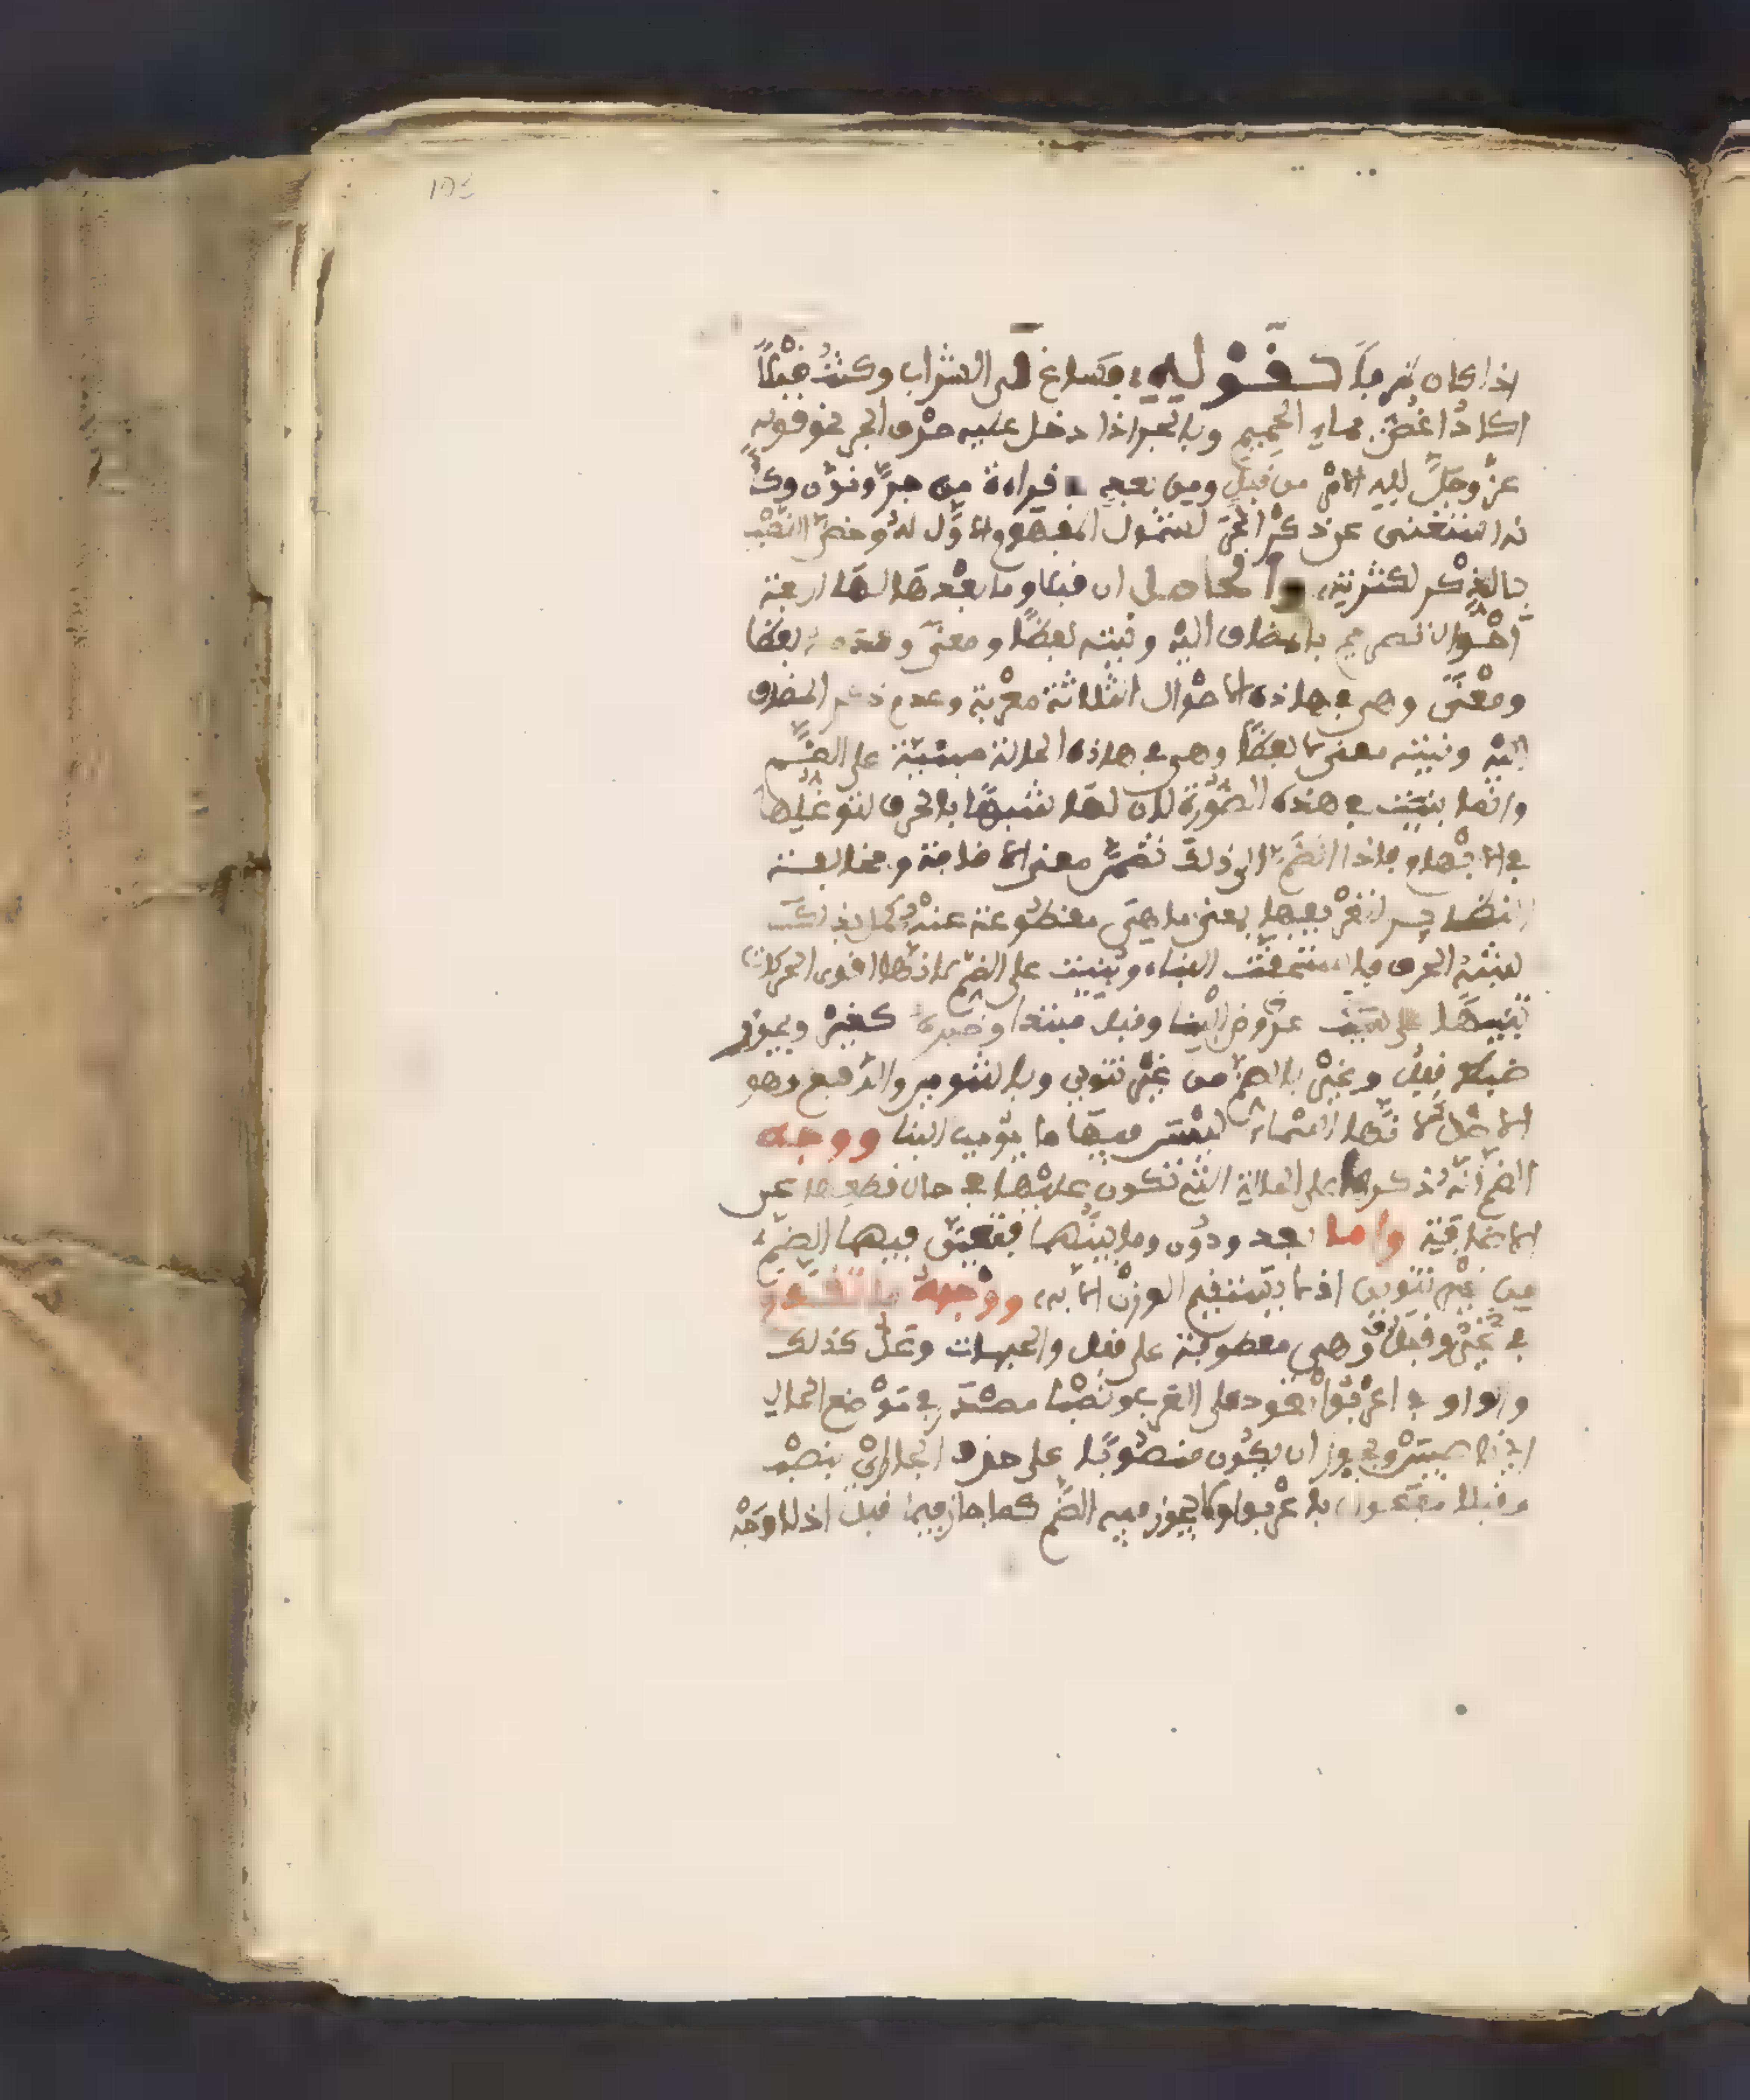 اذا كان ظرفا كقوله فساغ لى الشراب وكنت قبلا
اكاد اغص بماء الحميم وبالجر اذا دخل عليه حرف الجر نحو قوله
عز وجل لله الامر من قبل ومن بعد في قراءة من جر ونون وكـ
نه استغنى عن ذكر الجر لشمول المفهوم الاول له وخص النصب
بالذكر لكثرته والحاصل ان قبل وما بعدها لها اربعة
احوال بالمضاف اليه ونيته لفظا ومعنى وعدمه لفظا
ومعنى وهى في هاذه الاحوال الثلاثة معربة وعدم ذكر المضاف
اليه ونيته معنى لا لفظا وهى في هاذه الحالة مبنية على الضم
وانما بنيت في هذه الصورة لان لها شبها بالحرف لتوغلها
في الابهام فاذا انضم الى ذلك تضمن معنى الاضافة ومخالفة
النظاير لتعريفها بمعنى ما هى مقطوعة عنه كمل بذلك
لشبه الحرف فاستحقت البناء وبنيت على الضم لانها اقوى الحركات
تنبيها على عروض البنا وقبل مبتدا وخبره كغير ويجوز
ضبط قبل وغير بالضم من غير تنوين وبالتنوين والرفع وهو
الاصل لانها اسماء ليس فيها ما يوجب البنا ووجه
الضم انه ذكرها على الحالة التى تكون عليها في حال قطعها عن
الاضافة واما بعد ودون وما بينهما فتعين فيهما الضم
من غير تنوين اذ لا يستقيم الوزن الا به ووجهه ما تقدم
في غير وقبل وهى معطوفة على قبل والجهات وعل كذلك
والواو في اعربوا تعود على العرب ونصبا مصدر في موضع الحال
اى ناصبين ويجوز ان يكون منصوبا على حذف الجار اى بنصب
وقبلا مفعول باعربوا ولا يجوز فيه الضم كما جاز فيما قبل اذ لا وجه